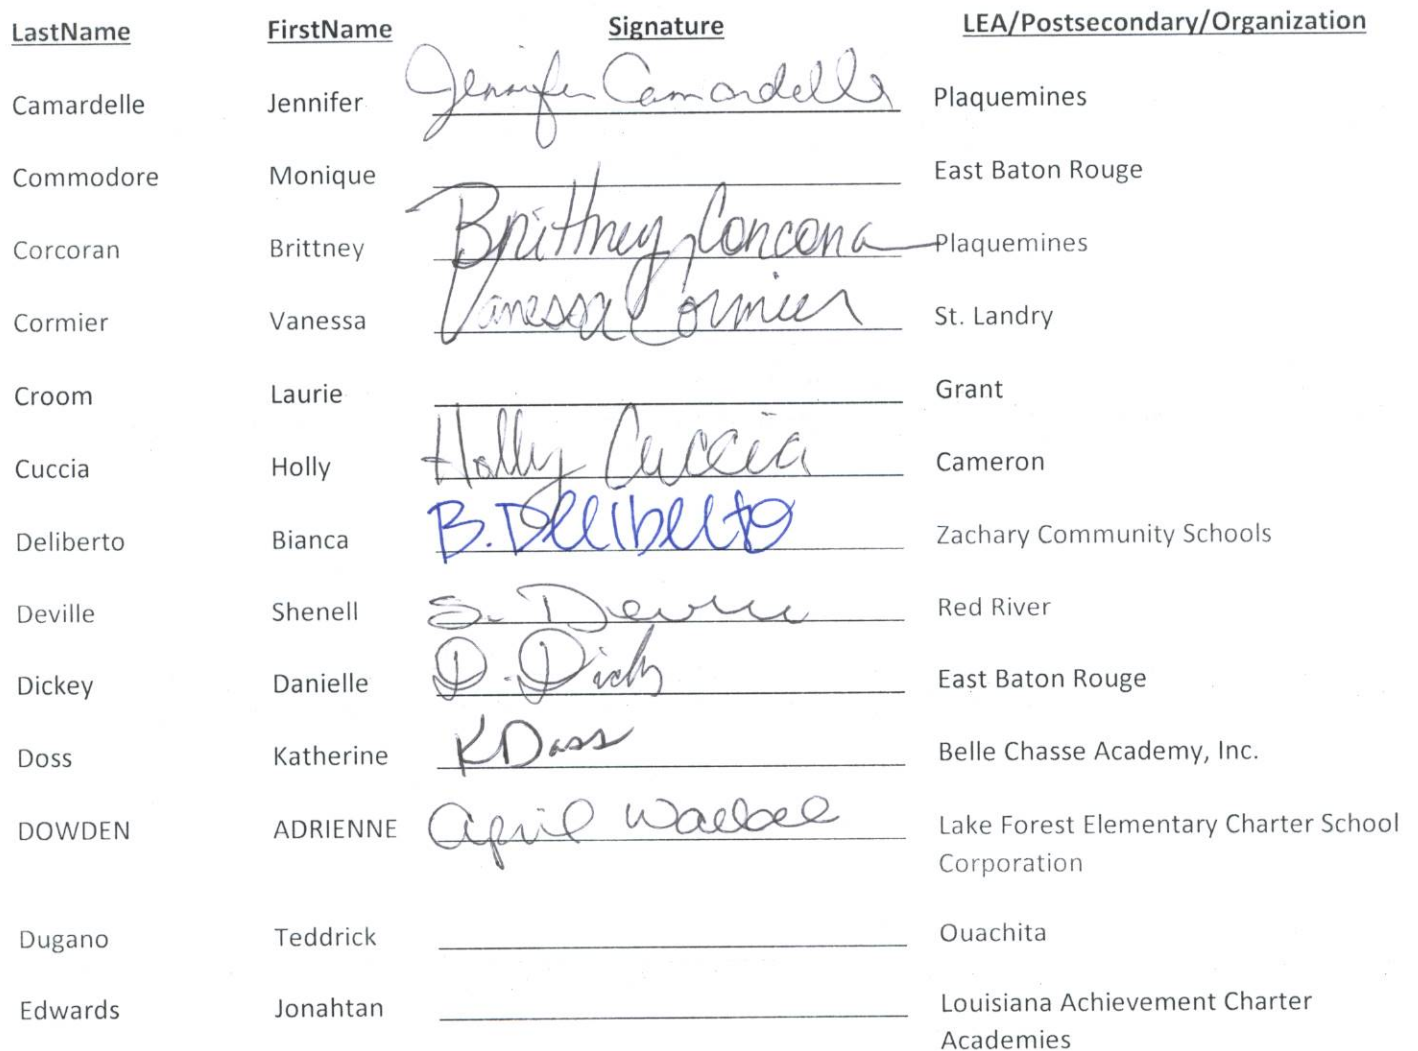 LastName FirstName Signature LEA/Postsecondary/Organization
Camardelle Jennifer Jennifer Camardelle Plaquemines
Commodore Monique East Baton Rouge
Corcoran Brittney Brittney Corcoran Plaquemines
Cormier Vanessa Vanessa Cormier St. Landry
Croom Laurie Grant
Cuccia Holly Holly Cuccia Cameron
Deliberto Bianca B. Deliberto Zachary Community Schools
Deville Shenell S. Deville Red River
Dickey Danielle D. Dickey East Baton Rouge
Doss Katherine K Doss Belle Chasse Academy, Inc.
DOWDEN ADRIENNE April Lake Forest Elementary Charter School
Corporation
Dugano Teddrick Ouachita
Edwards Jonahtan Louisiana Achievement Charter
Academies